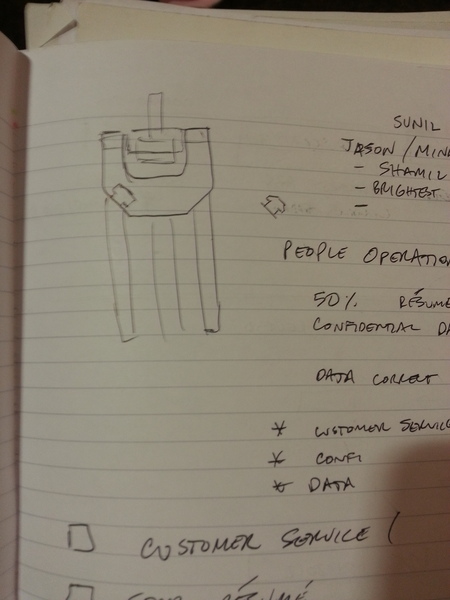 SUNIL
JASON / MIN
- SHAMIL
- BRIGHTEST
-
PEOPLE OPERATION
50% RÉSUME
CONFIDENTIAL DA
DATA CORRECT
* CUSTOMER SERVIC
* CONFI
* DATA
CUSTOMER SERVICE (
RÉSUMÉ